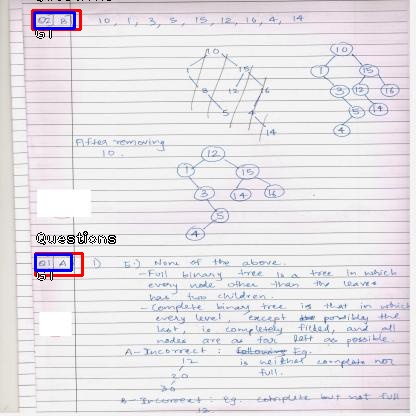 Questions
Q2 B 10, 1, 3, 5, 15, 12, 16, 4, 14
Q1
10
10
15
1
15
1
8
12
16
3
12
16
5
4
5
14
14
4
After removing
10.
12
1
15
3
14
16
5
4
Questions
Q1 A i) E.) None of the above.
Q1
- Full binary tree is a tree in which
every node other than the leaves
has two children.
- Complete binary tree is that in which
every level, except possibly the
last, is completely filled, and all
nodes are as far left as possible.
A - Incorrect : following Eg.
12 is neither complete nor
20 full.
30
B - Incorrect : Eg. complete but not full
12